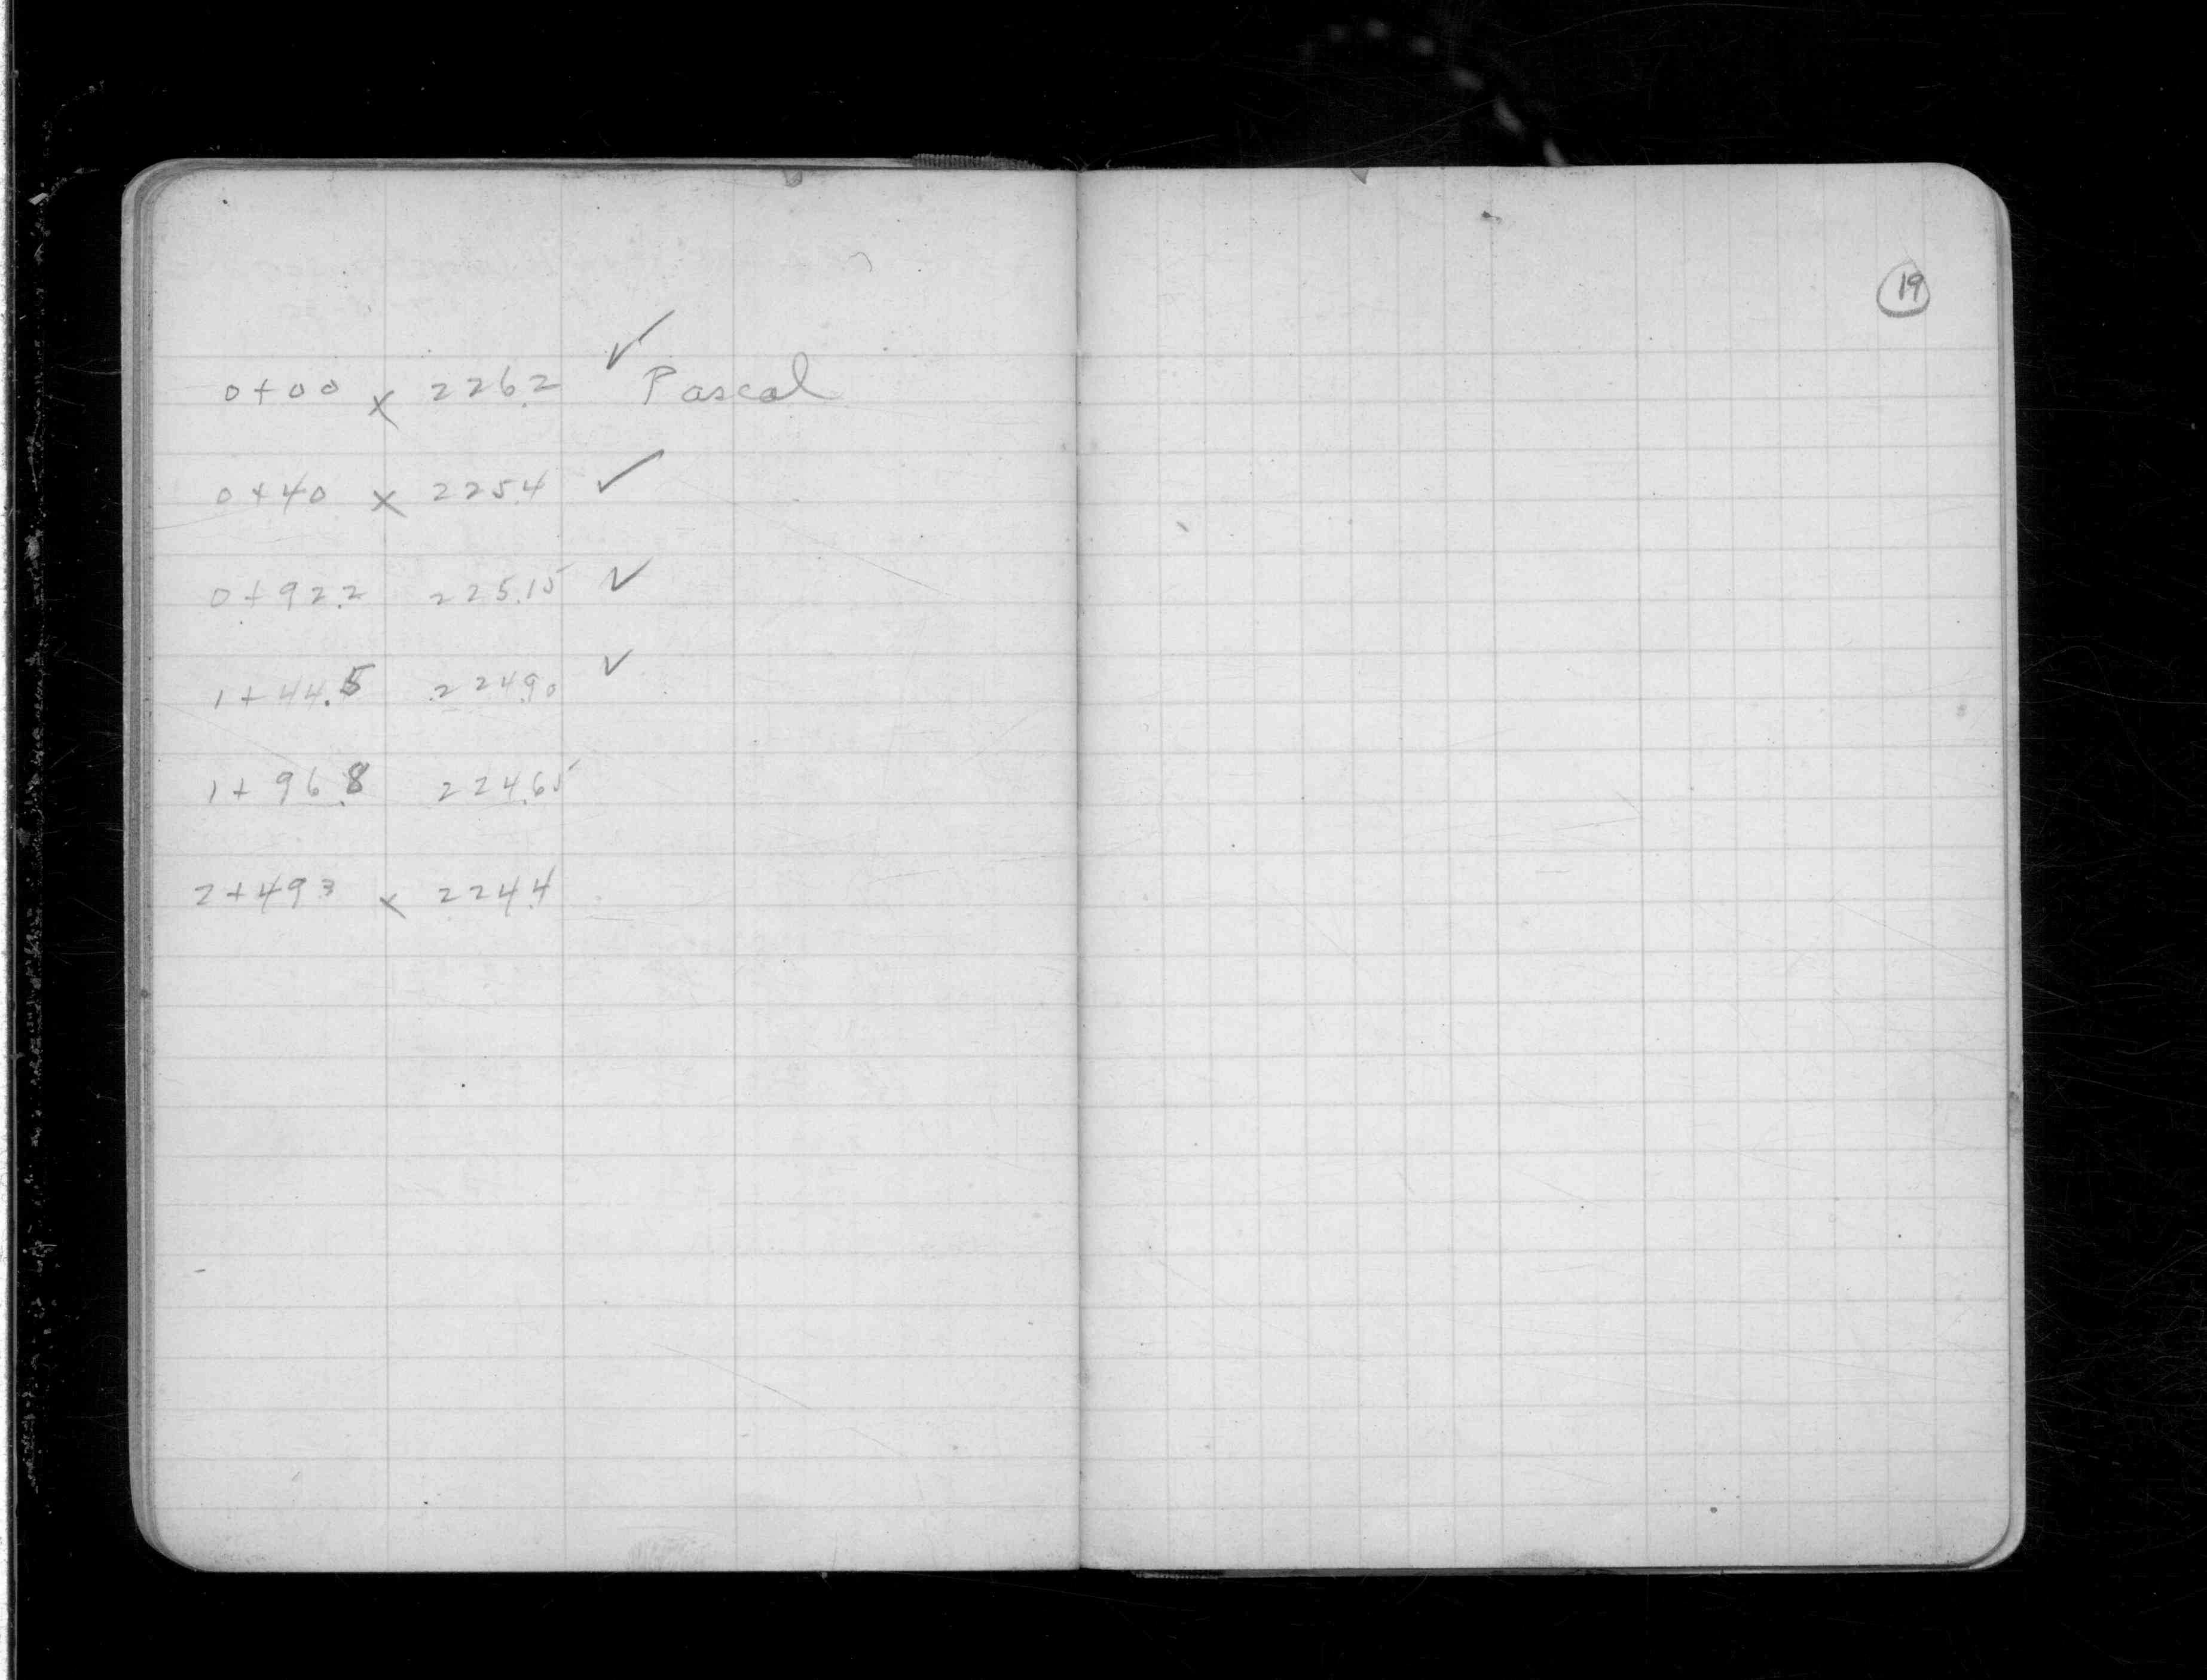 0+00 x 226.2 ✓ Pascal
0+40 x 225.4 ✓
0+92.2 225.15 ✓
1+44.5 224.90 ✓
1+96.8 224.65
2+493 x 224.4
19